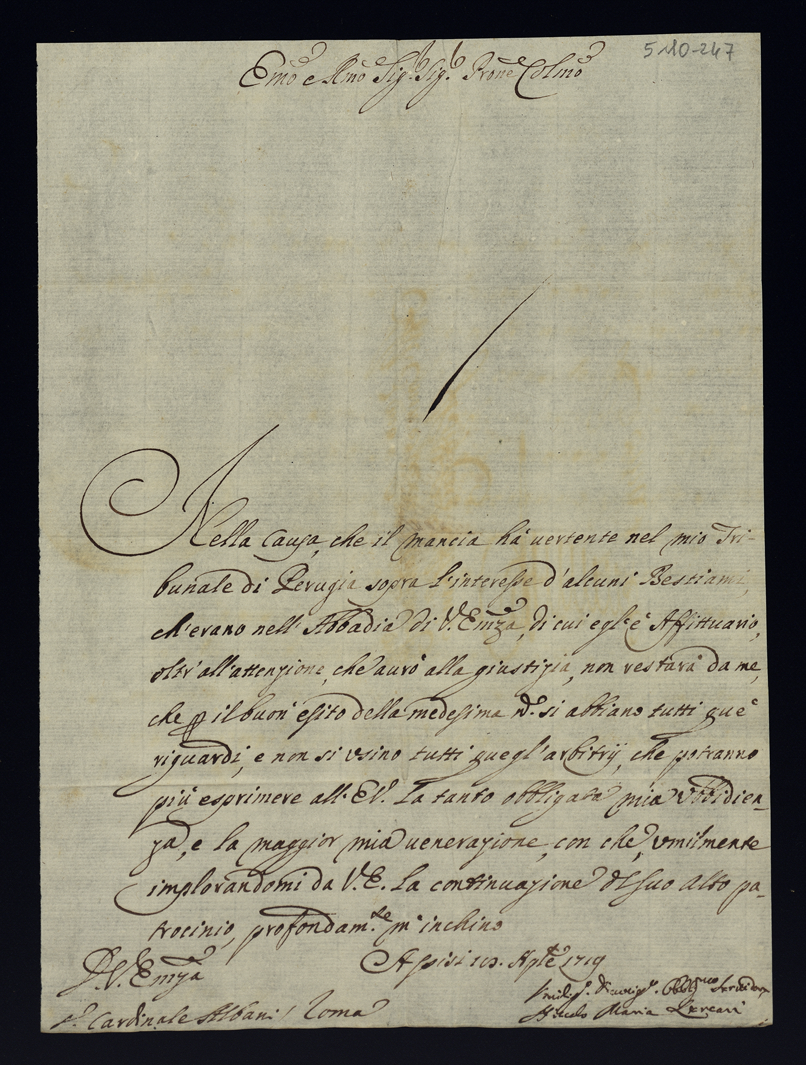 5-10-247
Emo e Rmo Sig.r Sig.r Prone Colmo
Nella Causa, che il Mancia hà vertente nel mio Tri-
bunale di Perugia sopra l'interesse d'alcuni Bestiami,
ch'erano nell'Abbadia di V. Emza, di cui egl'è Affittuario,
oltr'all'attenzione, che aurò alla giustizia, non restarà da me,
che p il buon'esito della medesima si abbiano tutti que'
riguardi, e non si usino tutti quegl'arbitrij, che potranno
più esprimere all'E.V. la tanto obbligata mia Vbbidien-
za, e la maggior mia uenerazione, con che umilmente
implorandomi da V.E. la continuazione del suo alto pa-
trocinio, profondam.te m'inchino
D.V. Emza
Assisi 1719
Cardinale Albani / Roma
Maria Lercari